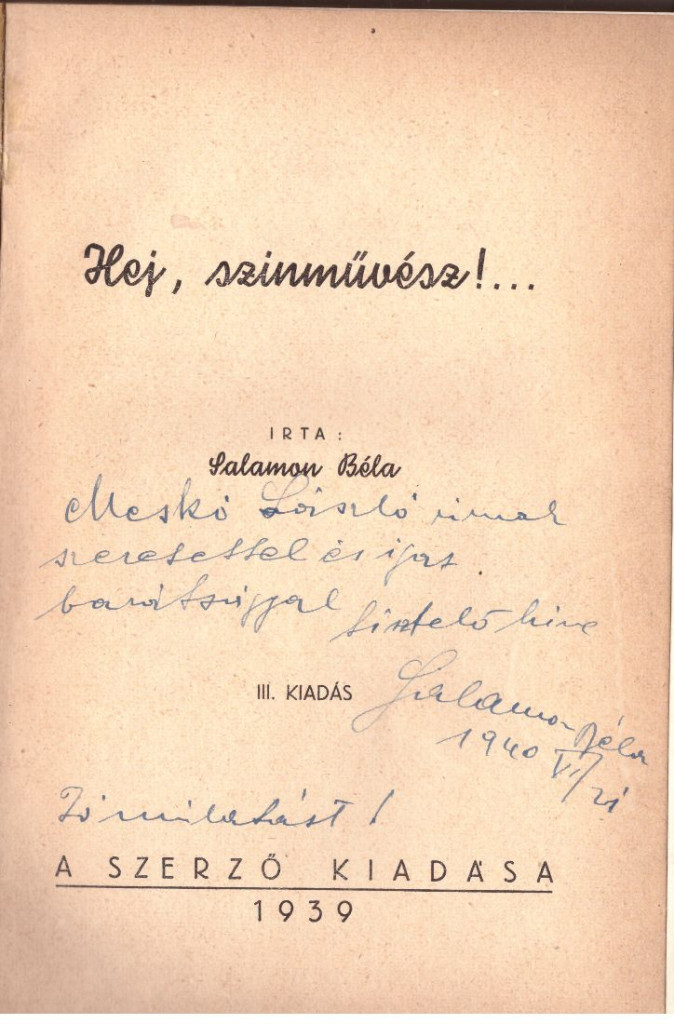 Hej, szinművész!...
IRTA:
Salamon Béla
Meskó László úrnak
szeretettel és igaz
barátsággal tisztelő hive
III. KIADÁS
Salamon Béla
1940 VI/21
Jó mulatást!
A SZERZŐ KIADÁSA
1939